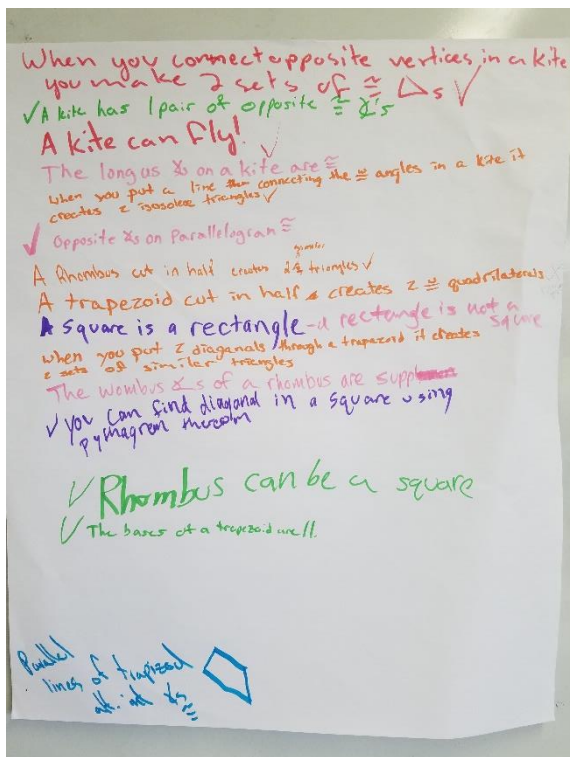 When you connect opposite vertices in a kite
you make 2 sets of ≅ △s ✓
✓ A kite has 1 pair of opposite ≅ ∡'s
A kite can fly!
The longus ∡s on a kite are ≅ ✓
When you put a line connecting the ≅ angles in a kite it
creates 2 isosolese triangles ✓
✓ Opposite ∡s on Parallelogram ≅
A Rhombus cut in half creates 2 ≅ triangles ✓
A trapezoid cut in half creates 2 ≅ quadrilaterals
A square is a rectangle - a rectangle is not a
square
When you put 2 diaganals through a trapazoid it creates
2 sets of similer triangles
The wombus ∡s of a rhombus are supp
✓ you can find diagonal in a square using
pythagren theorom
✓ Rhombus can be a square
✓ The bases of a trapezoid are //.
Parallel
lines of trapizod
alt. int ∡s
≅